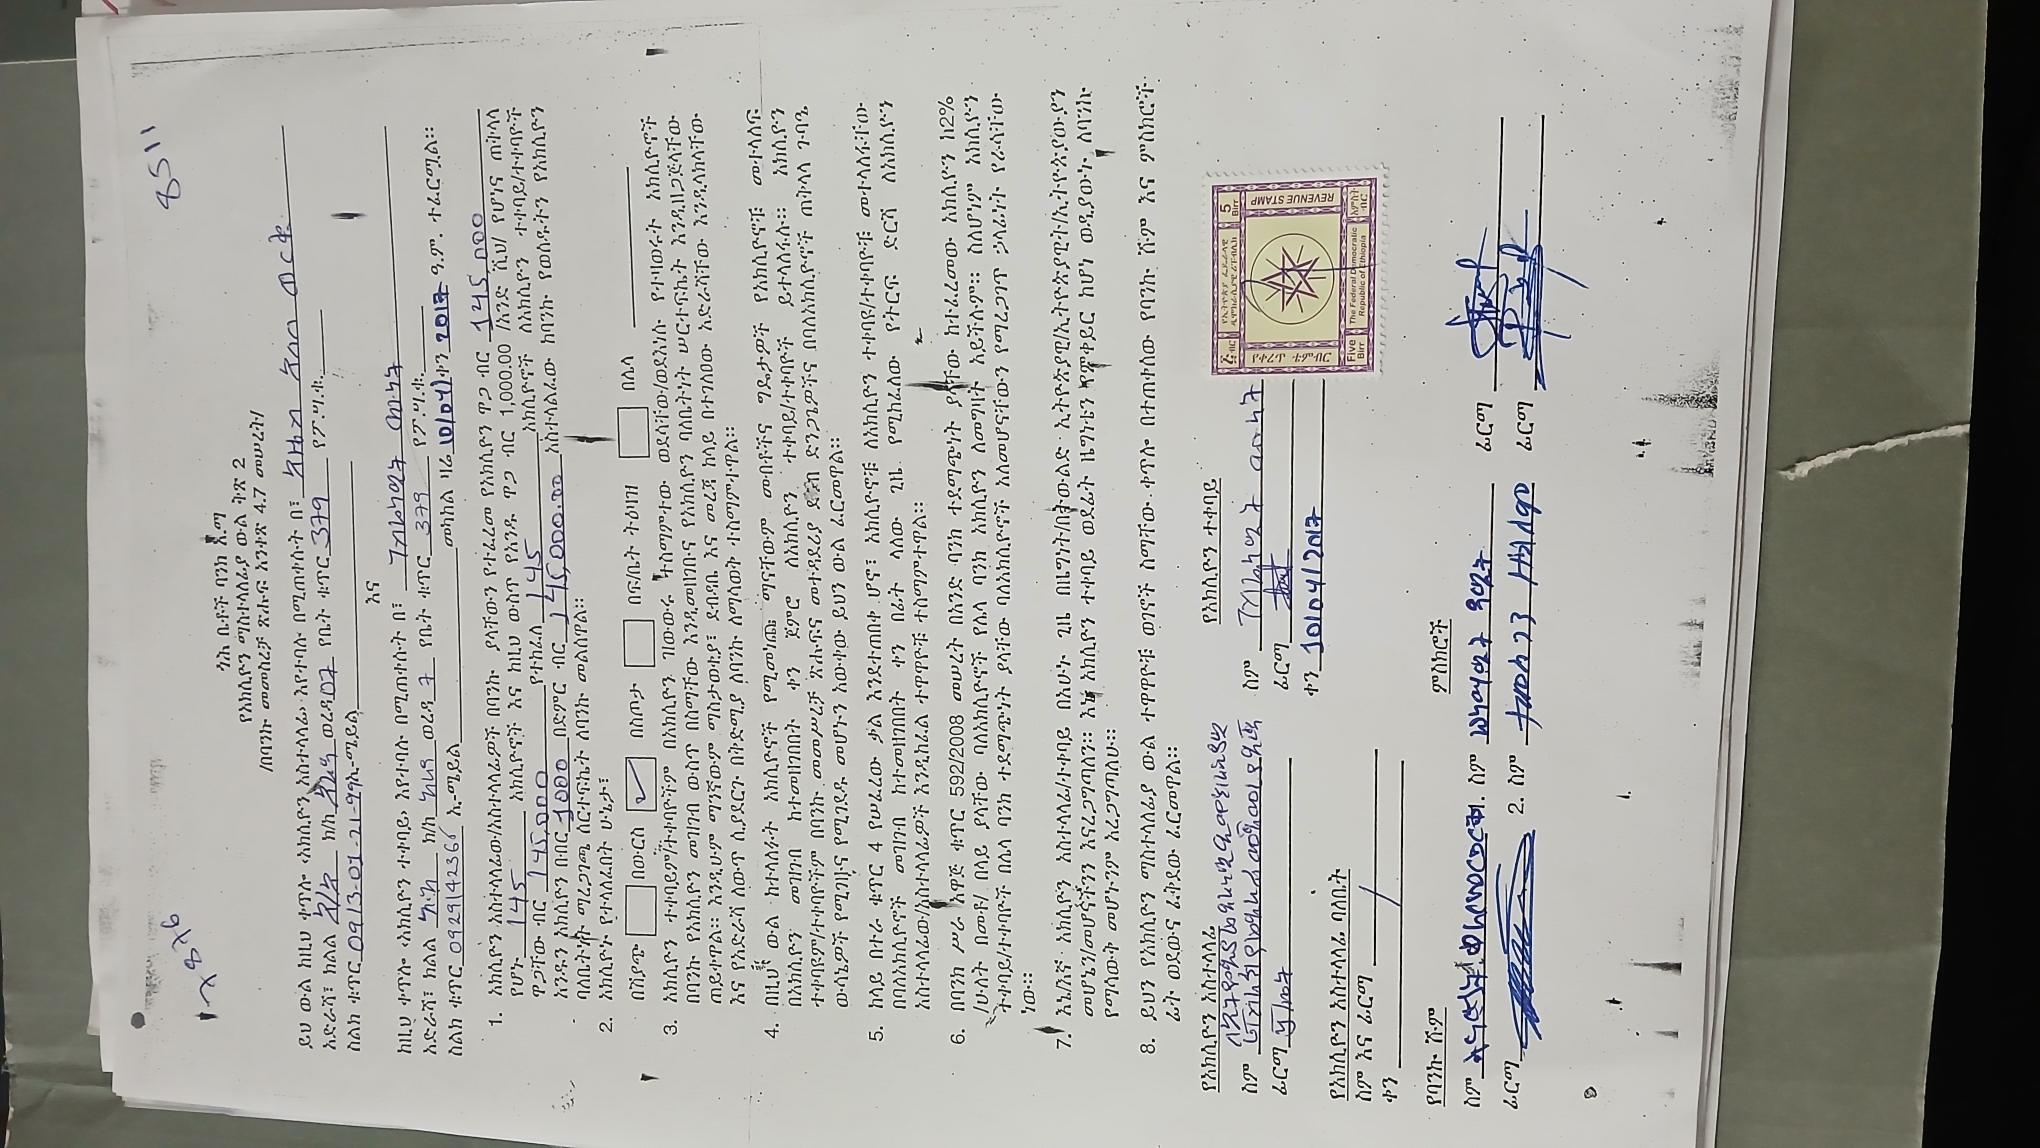 7876
8511
ጎሕ ቤቶች ባንክ አ.ማ
የአክሲዮን ማስተላለፊያ ውል ቅጽ 2
/በባንኩ መመስረቻ ጽሑፍ አንቀጽ 4.7 መሠረት/
ይህ ውል ከዚህ ቀጥሎ ‹አክሲዮን አስተላላፊ› እየተባሉ በሚጠቀሱት በ፣
አድራሻ፣ ክልል አ/አ ክ/ከ አራዳ ወረዳ 07 የቤት ቁጥር 379 የፖ.ሣ.ቁ.
ስልክ ቁጥር 0913-01-21-99 ኢ-ሜይል
እና
ከዚህ ቀጥሎ ‹አክሲዮን ተቀባይ› እየተባሉ በሚጠቀሱት በ፣
አድራሻ፣ ክልል አ.አ ክ/ከ አራዳ ወረዳ 7 የቤት ቁጥር 379 የፖ.ሣ.ቁ.
ስልክ ቁጥር 0929142366 ኢ-ሜይል መካከል ዛሬ 10/04/ ቀን 2017 ዓ.ም. ተፈርሟል፡፡
1. አክሲዮን አስተላላፊው/አስተላላፊዎች በባንኩ ያላቸውን የተፈረመ የአክሲዮን ዋጋ ብር 145,000
የሆኑ 145 አክሲዮኖች እና ከዚህ ውስጥ የአንዱ ዋጋ ብር 1,000.00 /አንድ ሺህ/ የሆነና ጠቅላላ
ዋጋቸው ብር 145,000 የተከፈለ 145 አክሲዮኖች ለአክሲዮን ተቀባይ/ተቀባዮች
አንዱን አክሲዮን በብር 1000 በድምር ብር 145,000.00 አስተላልፈው ከባንኩ የወሰዱትን የአክሲዮን
ባለቤትነት ማረጋገጫ ሰርተፍኬት ለባንኩ መልሰዋል፡፡
2. አክሲዮኑ የተላለፈበት ሁኔታ፣
በሽያጭ በውርስ በስጦታ በፍ/ቤት ትዕዛዝ በሌላ
3. አክሲዮን ተቀባይም/ተቀባዮችም በአክሲዮን ዝውውሩ ተስማምተው ወደሳቸው/ወደእነሱ የተዛወሩት አክሲዮኖች
በባንኩ የአክሲዮን መዝገብ ውስጥ በስማቸው እንዲመዘገቡና የአክሲዮን ባለቤትነት ሠርተፍኬት እንዲዘጋጅላቸው
ጠይቀዋል፡፡ እንዲሁም ማንኛውም ማስታወቂያ፣ ደብዳቤ እና መረጃ ከላይ በተገለፀው አድራሻቸው እንዲላክላቸው
እና የአድራሻ ለውጥ ሲያደርጉ በቅድሚያ ለባንኩ ለማሳወቅ ተስማምተዋል፡፡
4. በዚህ ውል ከተላለፉት አክሲዮኖች የሚመነጩ ማናቸውም መብቶችና ግዴታዎች የአክሲዮኖቹ መተላለፍ
በአክሲዮን መዝገብ ከተመዘገበበት ቀን ጀምሮ ለአክሲዮን ተቀባይ/ተቀባዮች ይተላለፋሉ፡፡ አክሲዮን
ተቀባዩም/ተቀባዮችም በባንኩ መመሥረቻ ጽሑፍና መተዳደሪያ ደንብ ድንጋጌዎችና በባለአክሲዮኖች ጠቅላላ ጉባዔ
ውሳኔዎች የሚገዙና የሚገደዱ መሆኑን አውቀው ይህን ውል ፈርመዋል፡፡
5. ከላይ በተራ ቁጥር 4 የሠፈረው ቃል እንደተጠበቀ ሆኖ፣ አክሲዮኖቹ ለአክሲዮን ተቀባዩ/ተቀባዮቹ መተላለፋቸው
በባለአክሲዮኖች መዝገብ ከተመዘገበት ቀን በፊት ላለው ጊዜ የሚከፈለው የትርፍ ድርሻ ለአክሲዮን
አስተላላፊው/አስተላላፊዎች እንዲከፈል ተዋዋዮቹ ተስማምተዋል፡፡
6. በባንክ ሥራ አዋጅ ቁጥር 592/2008 መሠረት በአንድ ባንክ ተደማጭነት ያላቸው ከተፈረመው አክሲዮን ከ2%
/ሁለት በመቶ/ በላይ ያላቸው ባለአክሲዮኖች የሌላ ባንክ አክሲዮን ለመግዛት አይችሉም፡፡ ስለሆነም አክሲዮን
ተቀባይ/ተቀባዮች በሌላ ባንክ ተደማጭነት ያላቸው ባለአክሲዮኖች አለመሆናቸውን የማረጋገጥ ኃላፊነት የራሳቸው
ነው፡፡
7. እኔ/እኛ አክሲዮን አስተላላፊ/ተቀባይ በአሁኑ ጊዜ በዜግነት/በትውልድ ኢትዮጵያዊ/ኢትዮጵያዊት/ኢትዮጵያውያን
መሆኔን/መሆናችንን እናረጋግጣለን፡፡ እኔ አክሲዮን ተቀባይ ወደፊት ዜግነቴን የምቀይር ከሆነ ወዲያውኑ ለባንኩ
የማሳውቅ መሆኑንም አረጋግጣለሁ፡፡
8. ይህን የአክሲዮን ማስተላለፊያ ውል ተዋዋዮቹ ወገኖች ስማቸው ቀጥሎ በተጠቀሰው የባንኩ ሹም እና ምስክሮች
ፊት ወደውና ፈቅደው ፈርመዋል፡፡
የአክሲዮን አስተላላፊ
የአክሲዮን ተቀባይ
ስም
ስም
ፊርማ
ፊርማ
ቀን 10/04/2017
የአክሲዮን አስተላላፊ ባለቤት
ስም እና ፊርማ
ቀን
5 Birr
REVENUE STAMP
Five Birr
The Federal Democratic Republic of Ethiopia
አምስት ብር
የባንኩ ሹም
ምስክሮች
ስም
1. ስም
ፊርማ
ፊርማ
2. ስም
ፊርማ